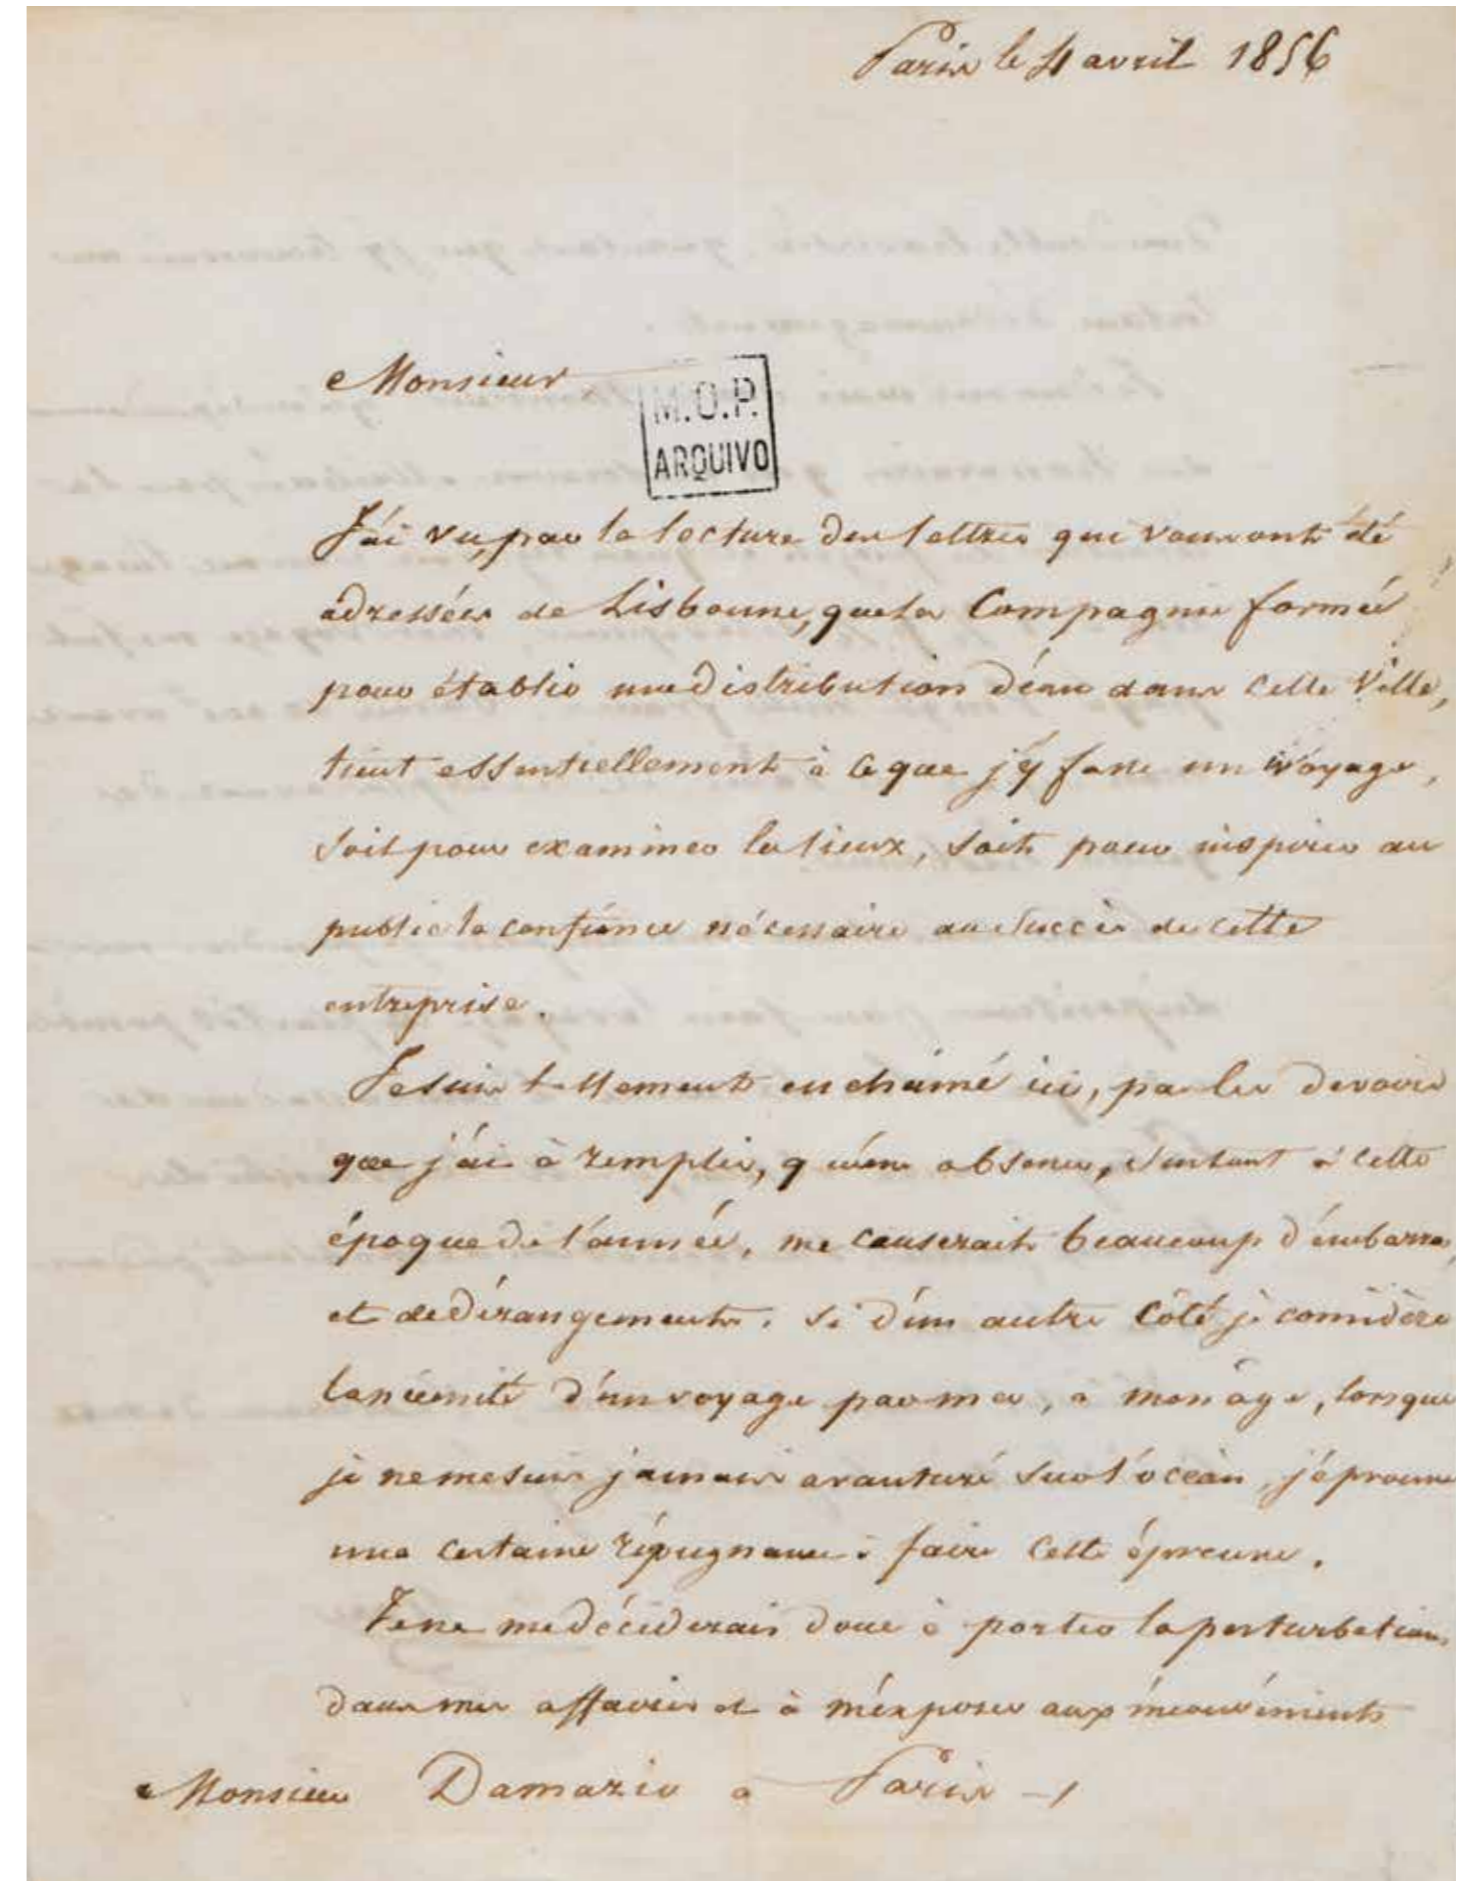 Paris le 4 avril 1856
Monsieur
M.O.P.
ARQUIVO
J'ai vu, par la lecture des lettres qui vous ont été
adressées de Lisbonne, que la Compagnie formée
pour établir une distribution d'eau dans cette Ville,
tient essentiellement à ce que j'y fasse un voyage,
soit pour examiner les lieux, soit pour inspirer au
public la confiance nécessaire au succès de cette
entreprise.
Je suis tellement enchainé ici, par les devoirs
que j'ai à remplir, qu'une absence, surtout à cette
époque de l'année, me causerait beaucoup d'embarras
et de dérangements. Si d'un autre côté je considère
la nécessité d'un voyage par mer, à mon âge, lorsque
je ne me suis jamais avanturé sur l'océan, j'éprouve
une certaine répugnance à faire cette épreuve.
Je ne me déciderais donc à porter la perturbation
dans mes affaires et à m'exposer aux inconvénients
Monsieur Damazio à Paris